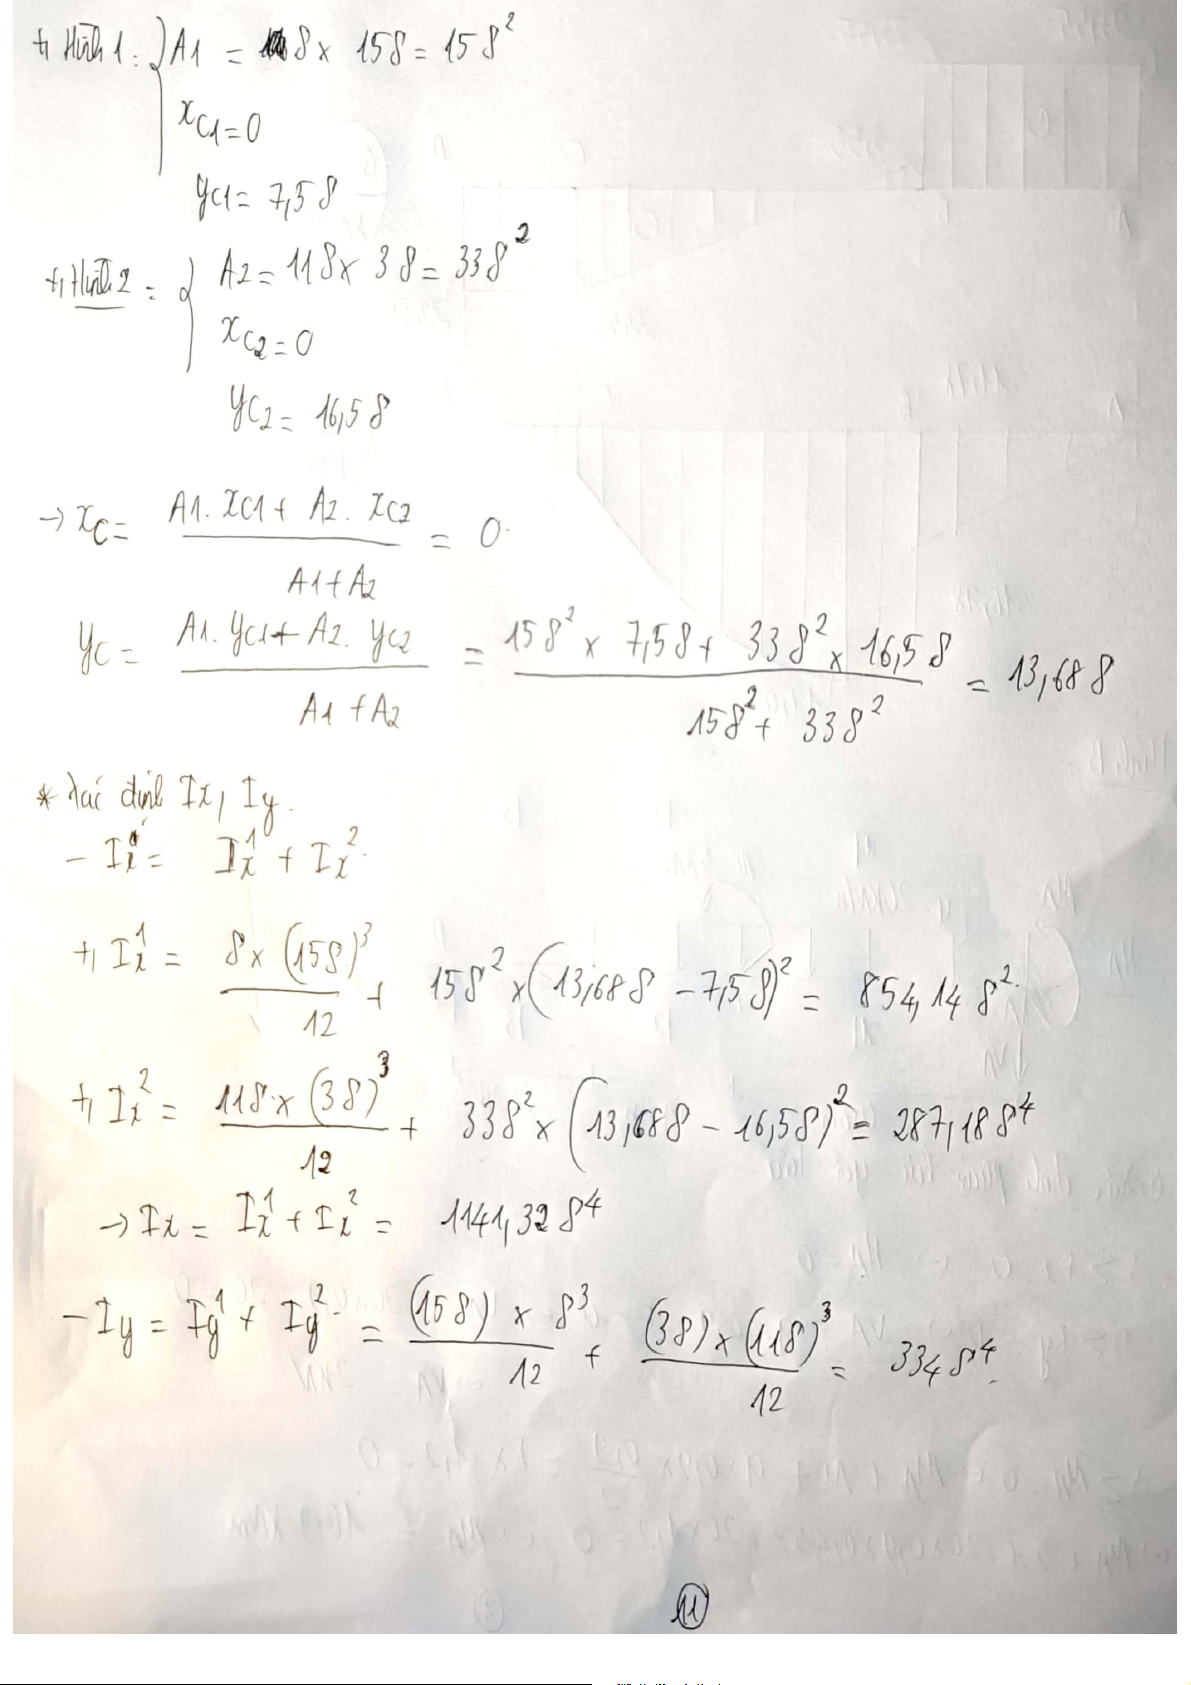 +, Hình 1: { A1 = δ x 15δ = 15δ²
xC1 = 0
yC1 = 7,5δ
+, Hình 2 = { A2 = 11δ x 3δ = 33δ²
xC2 = 0
yC2 = 16,5δ
→ xC = (A1. xC1 + A2. xC2) / (A1 + A2) = 0.
yC = (A1. yC1 + A2. yC2) / (A1 + A2) = (15δ² x 7,5δ + 33δ² x 16,5δ) / (15δ² + 33δ²) = 13,68δ
* Xác định Ix, Iy.
- Ix = Ix¹ + Ix².
+, Ix¹ = δ x (15δ)³ / 12 + 15δ² x (13,68δ - 7,5δ)² = 854,14δ².
+, Ix² = 11δ x (3δ)³ / 12 + 33δ² x (13,68δ - 16,5δ)² = 287,18δ⁴
→ Ix = Ix¹ + Ix² = 1141,32δ⁴
- Iy = Iy¹ + Iy² = (15δ) x δ³ / 12 + (3δ) x (11δ)³ / 12 = 334δ⁴.
11